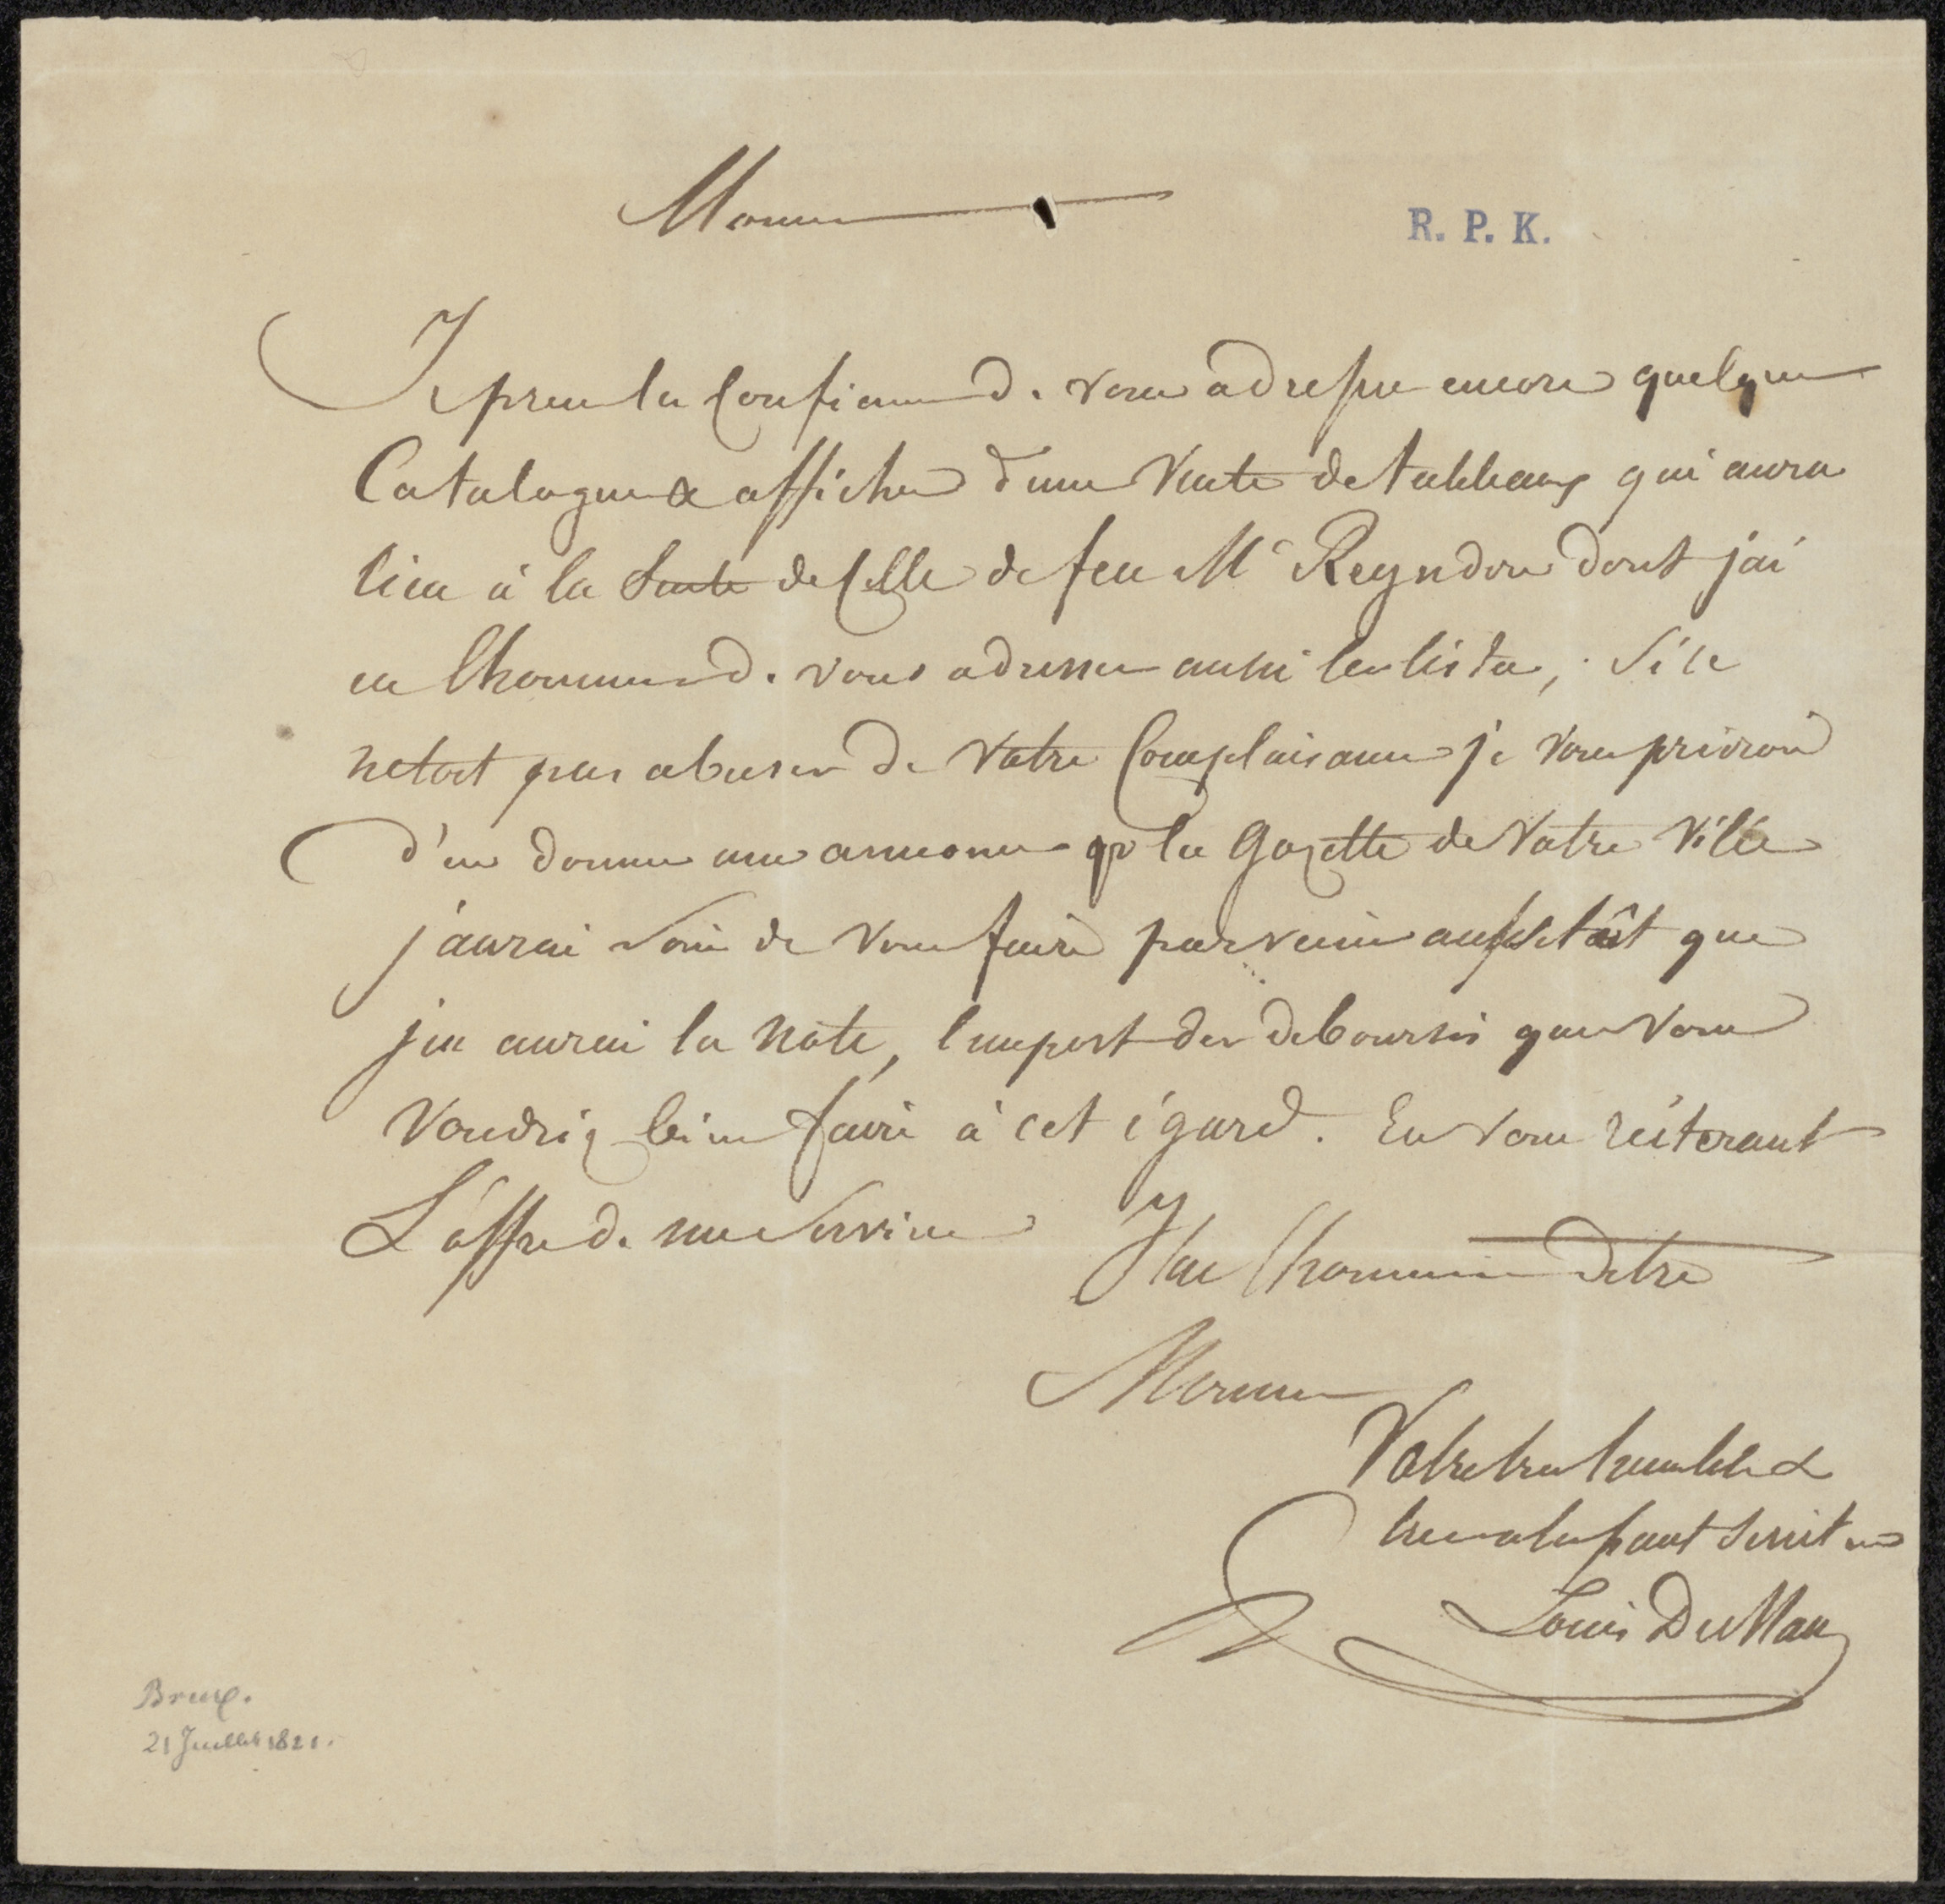 Monsieur
R. P. K.
Je prens la Confiance de vous adresser encore quelques
Catalogues & affiches d'une Vente de tableaux qui aura
lieu à la Suite de Celle de feu Mr Reyndon dont j'ai
eu lhonneur de vous adresser aussi les listes, Si ce
netoit pas abuser de Votre Complaisance je vous prierois
d'en donner une annonce pr la Gazette de Votre Ville
j'aurai soin de vous faire parvenir aussitôt que
j'en aurai la Note, limport des deboursés que vous
Voudriez bien faire à cet égard. En vous réiterant
L'offre de mes Services
J'ai lhonneur detre
Monsieur
Votre tres humble &
tres obeissant Serviteur
Louis DeMan
Brux.
21 Juillet 1821.